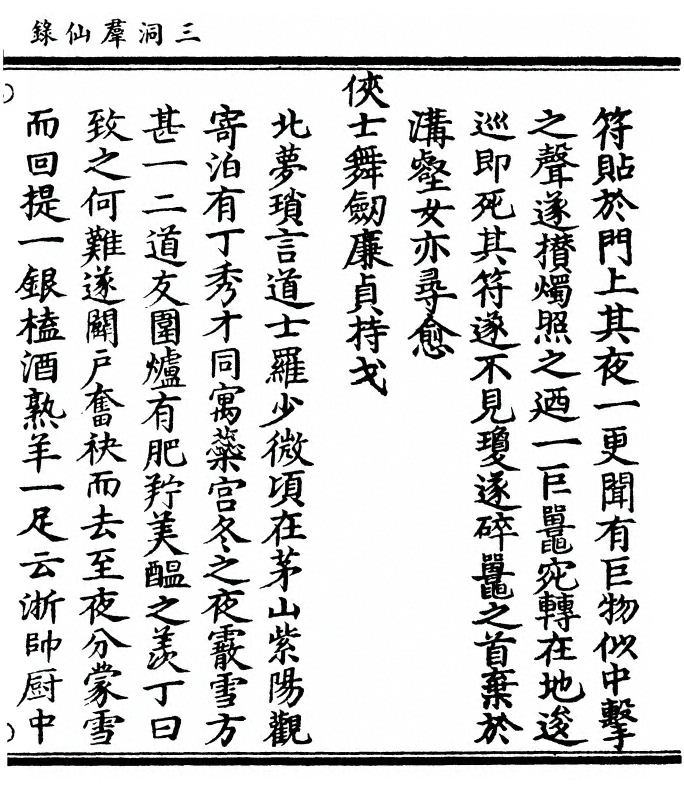 三洞羣仙錄
符貼於門上其夜一更聞有巨物似中擊
之聲遂攅燭照之迺一巨鼉宛轉在地逡
巡即死其符遂不見瓊遂碎鼉之首棄於
溝壑女亦尋愈
俠士舞劒廉貞持戈
北夢瑣言道士羅少微頃在茅山紫陽觀
寄泊有丁秀才同寓蘂宫冬之夜霰雪方
甚一二道友圍爐有肥羜美醖之羨丁曰
致之何難遂闢戶奮袂而去至夜分蒙雪
而回提一銀榼酒熟羊一足云浙帥厨中